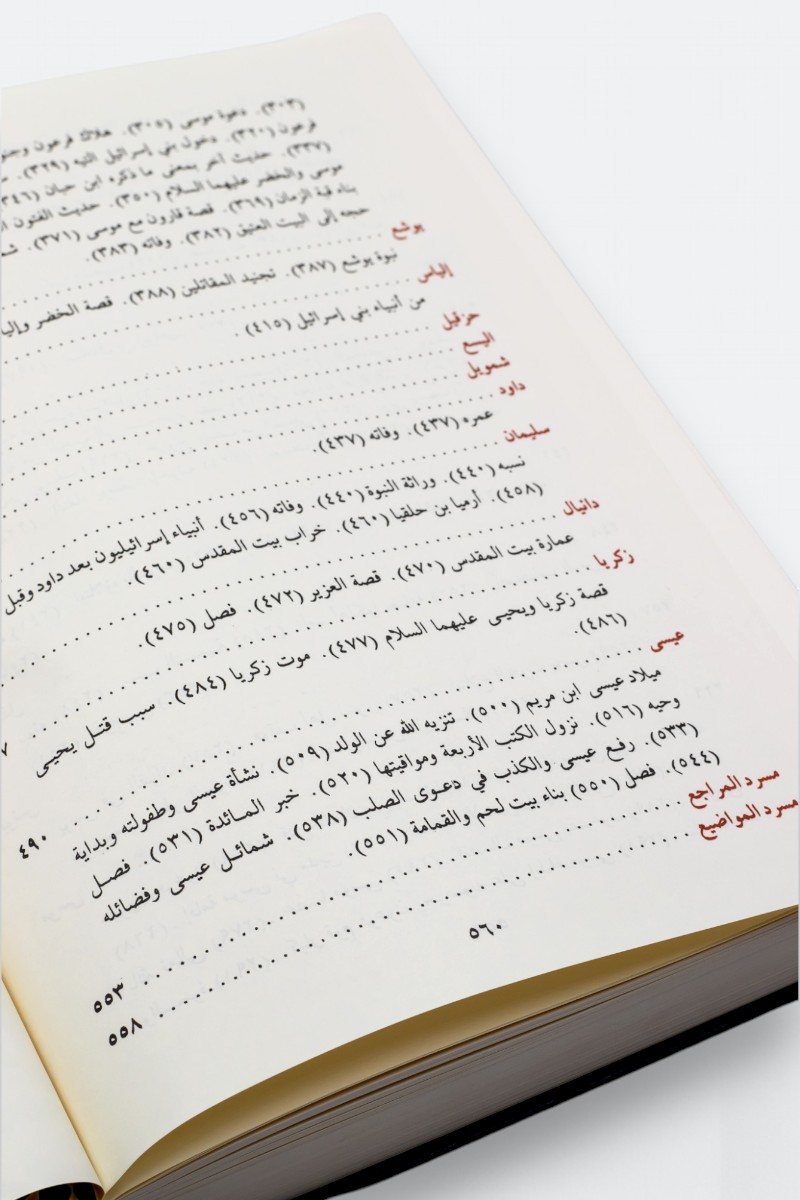 (٣٠٣). دعوة موسى (٣٠٥). هلاك فرعون وجنو
فرعون (٣٢٠). دخول بني إسرائيل التيه (٣٢٩).
(٣٣٧). حديث آخر بمعنى ما ذكره ابن حبان (٣٤٦)
موسى والخضر عليهما السلام (٣٥٠). حديث الفتون
بناء قبة الزمان (٣٦٩). قصة قارون مع موسى (٣٧١).
حجه إلى البيت العتيق (٣٨٢). وفاته (٣٨٣).
يوشع
نبوة يوشع (٣٨٧). تجنيد المقاتلين (٣٨٨). قصة الخضر وإليا
إلياس
من أنبياء بني إسرائيل (٤١٥).
حزقيل
اليسع
شمويل
داود
عمره (٤٣٧). وفاته (٤٣٧).
سليمان
نسبه (٤٤٠). وراثة النبوة (٤٤٠). وفاته (٤٥٦). أنبياء إسرائيليون بعد داود وقبل
(٤٥٨). أرميا بن حلقيا (٤٦٠). خراب بيت المقدس (٤٦٠).
دانيال
عمارة بيت المقدس (٤٧٠). قصة العزير (٤٧٢). فصل (٤٧٥).
زكريا ٧
قصة زكريا ويحيى عليهما السلام (٤٧٧). موت زكريا (٤٨٤). سبب قتل يحيى
(٤٨٦).
عيسى ٤٩٠
ميلاد عيسى ابن مريم (٥٠٠). تنزيه الله عن الولد (٥٠٩). نشأة عيسى وطفولته وبداية
وحيه (٥١٦). نزول الكتب الأربعة ومواقيتها (٥٢٠). خبر المائدة (٥٣١). فصل
(٥٣٣). رفع عيسى والكذب في دعوى الصلب (٥٣٨). شمائل عيسى وفضائله
(٥٤٤). فصل (٥٥٠) بناء بيت لحم والقمامة (٥٥١).
مسرد المراجع ٥٥٣
مسرد المواضيع ٥٥٨
٥٦٠